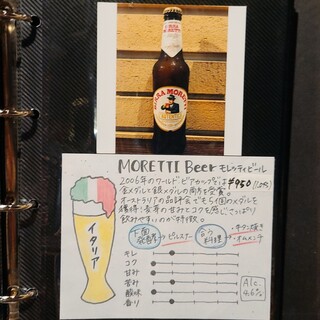 BIRRA MORETTI
MORETTI Beer モレッティビール
2006年のワールドビアカップでは
¥950
金メダルと銀メダルの両方を受賞。
オーストラリアの品評会でも4個のメダルを
獲得!麦芽の甘みとコクを感じ、さっぱり
飲みやすいのが特徴。
イタリア
下面発酵
ピルスナー
合う料理
キレ
コク
甘み
苦み
酸味
香り
Alc.
4.6%